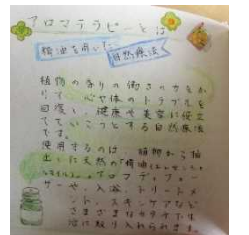 アロマテラピーとは
精油を用いた
自然療法
植物の香りの働きの力をか
りて、心や体のトラブルを
回復し、健康や美容に役立
てていこうとする自然療法
です。
使用するのは、植物から抽
出した天然の「精油(エッセンシャ
ルオイル)」。アロマディフュー
ザーや、入浴、トリートメ
ント、スキンケアなど、
さまざまなカタチで生
活に取り入れられます。